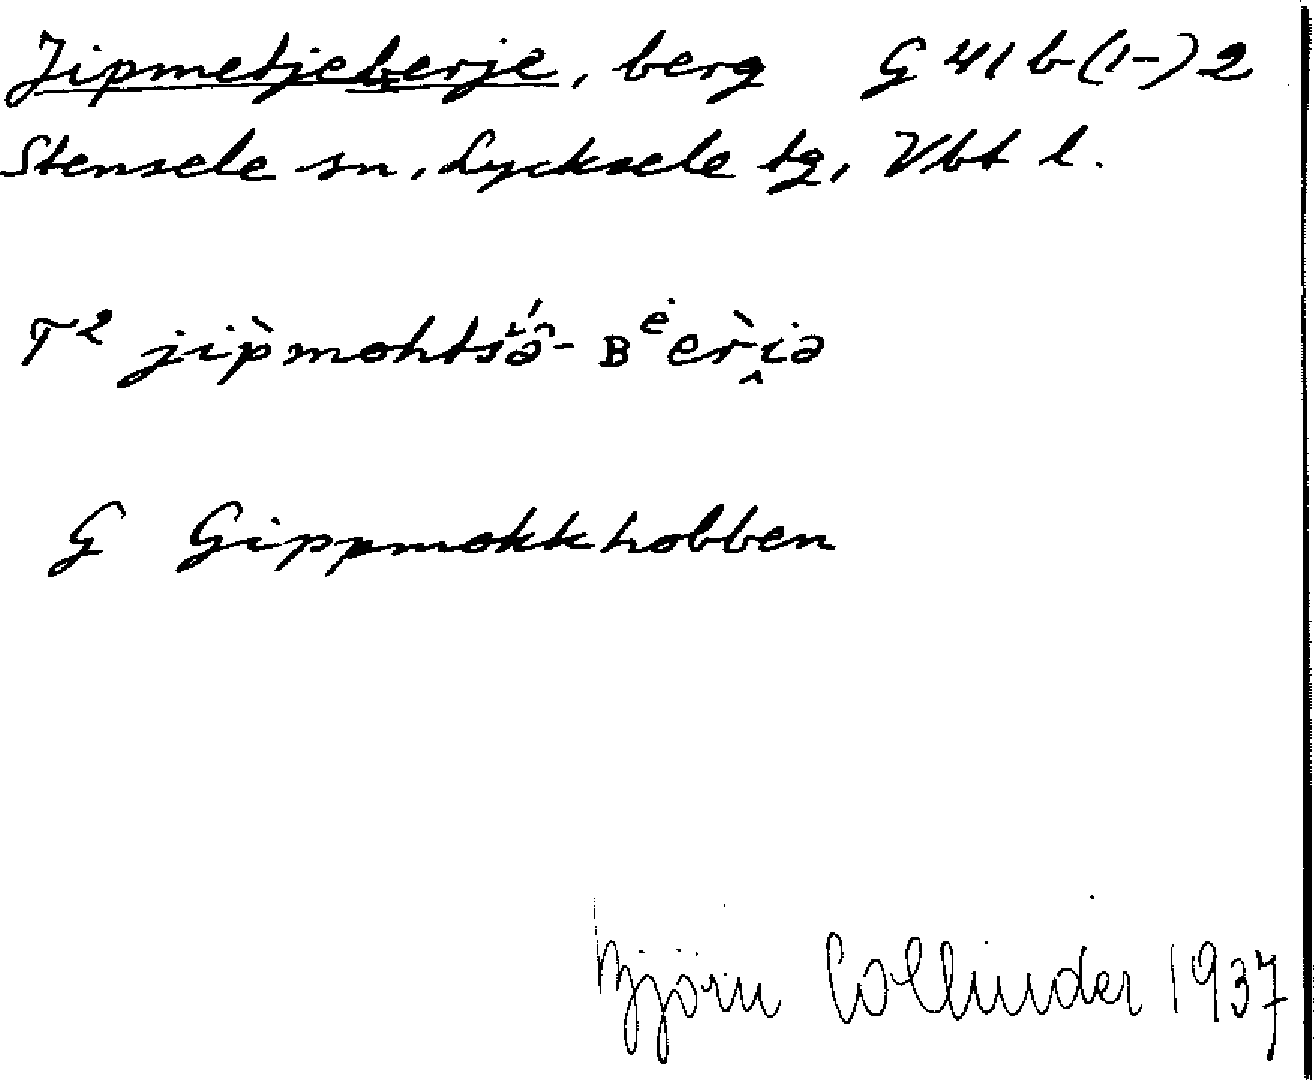 Jipmetjeberje, berg G 41 b (1-) 2
Stensele sn, Lycksele tg, Vbt l.
T² jip̀mohtsə̂- ʙᵉ̇er̀i̭ə
G Gippmokkhobben
Björn Collinder 1937